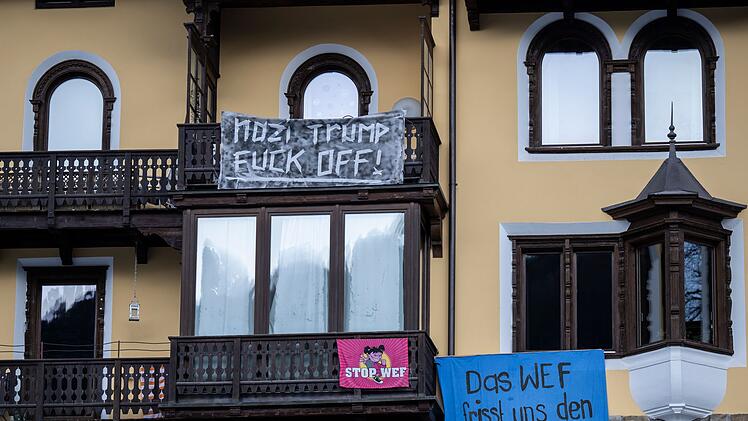 NAZI TRUMP
FUCK OFF!
STOP WEF
Das WEF
frisst uns den